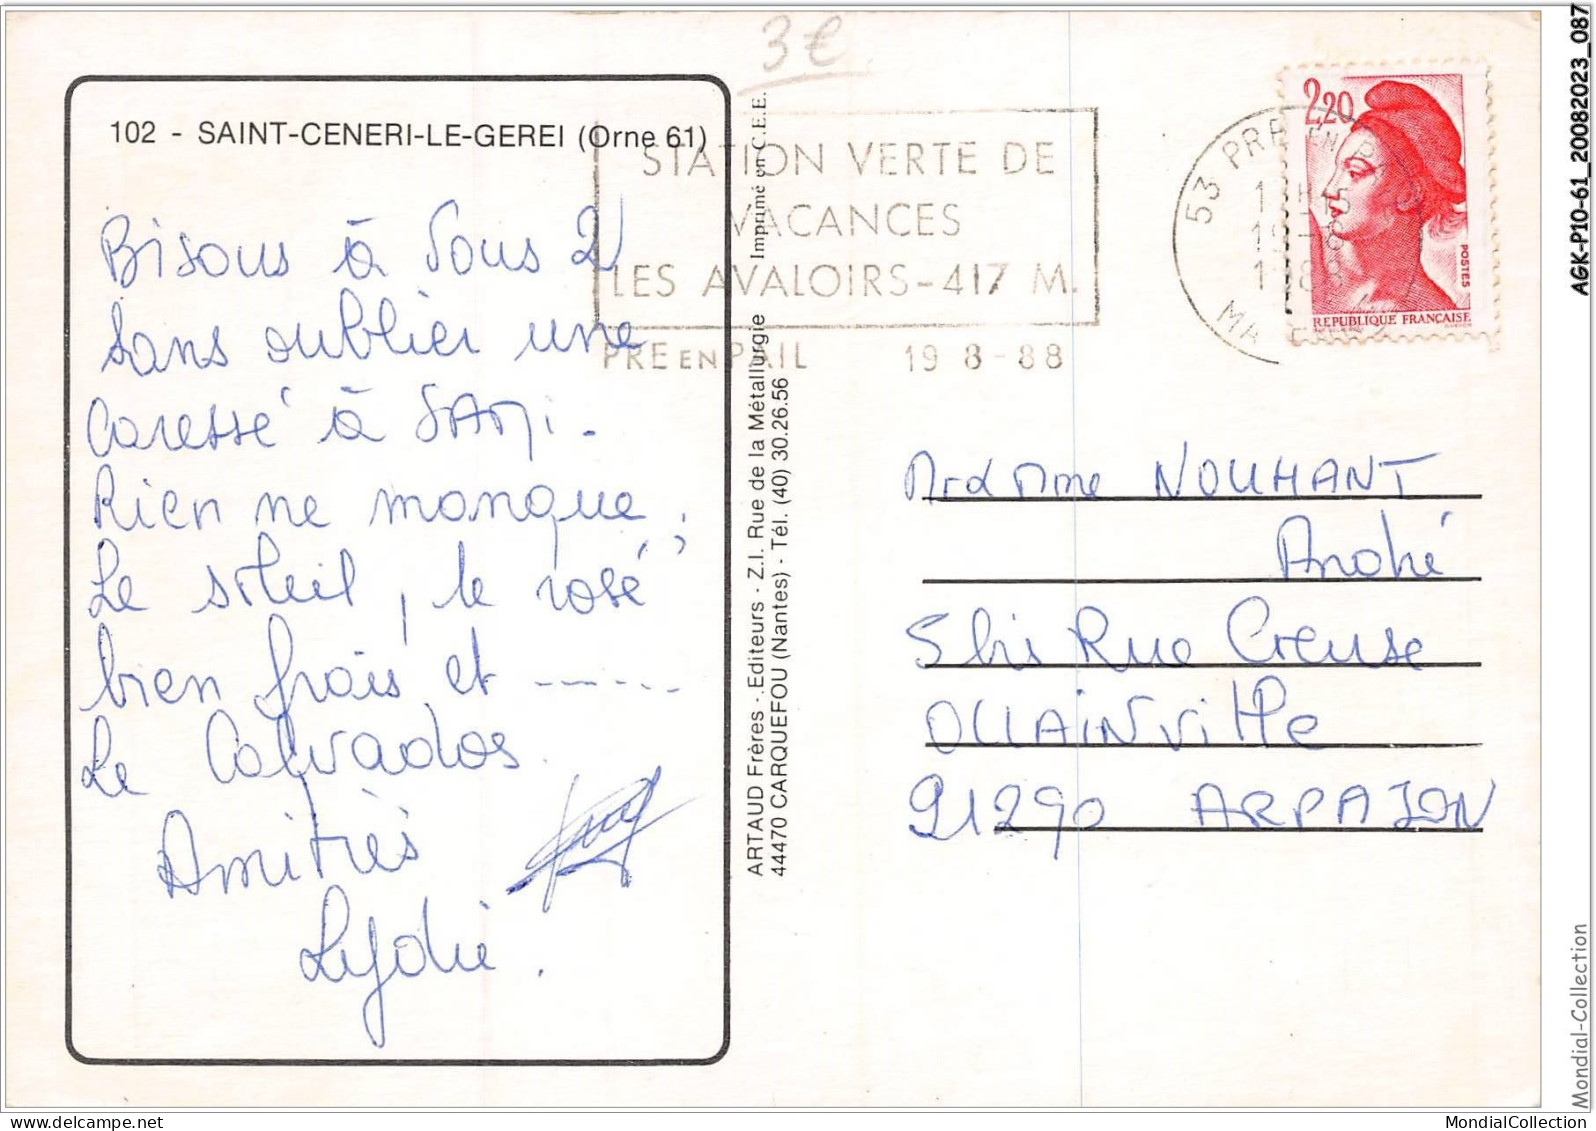 3€
102 - SAINT-CENERI-LE-GEREI (Orne 61)
Bisous à Vous 2
Sans oublier une
Caresse à SAMI.
Rien ne manque,
Le soleil, le rosé
bien frais et ------
Le Calvados.
Amitiés
Lydie.
ARTAUD Frères - Editeurs - Z.I. Rue de la Métallurgie Imprimé en C.E.E.
44470 CARQUEFOU (Nantes) - Tél. (40) 30.26.56
STATION VERTE DE
VACANCES
LES AVALOIRS-417 M.
PRE EN PAIL 19 8-88
53 PRE EN PAIL
19-8
1988
2,20
POSTES
REPUBLIQUE FRANÇAISE
Mr & Mme NOUHANT
André
5bis Rue Creuse
OLLAINVILLE
91290 ARPAJON
AGK-P10-61_20082023_087
Mondial-Collection
MondialCollection